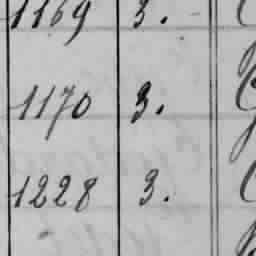 1169 3.
1170 3.
1228 3.